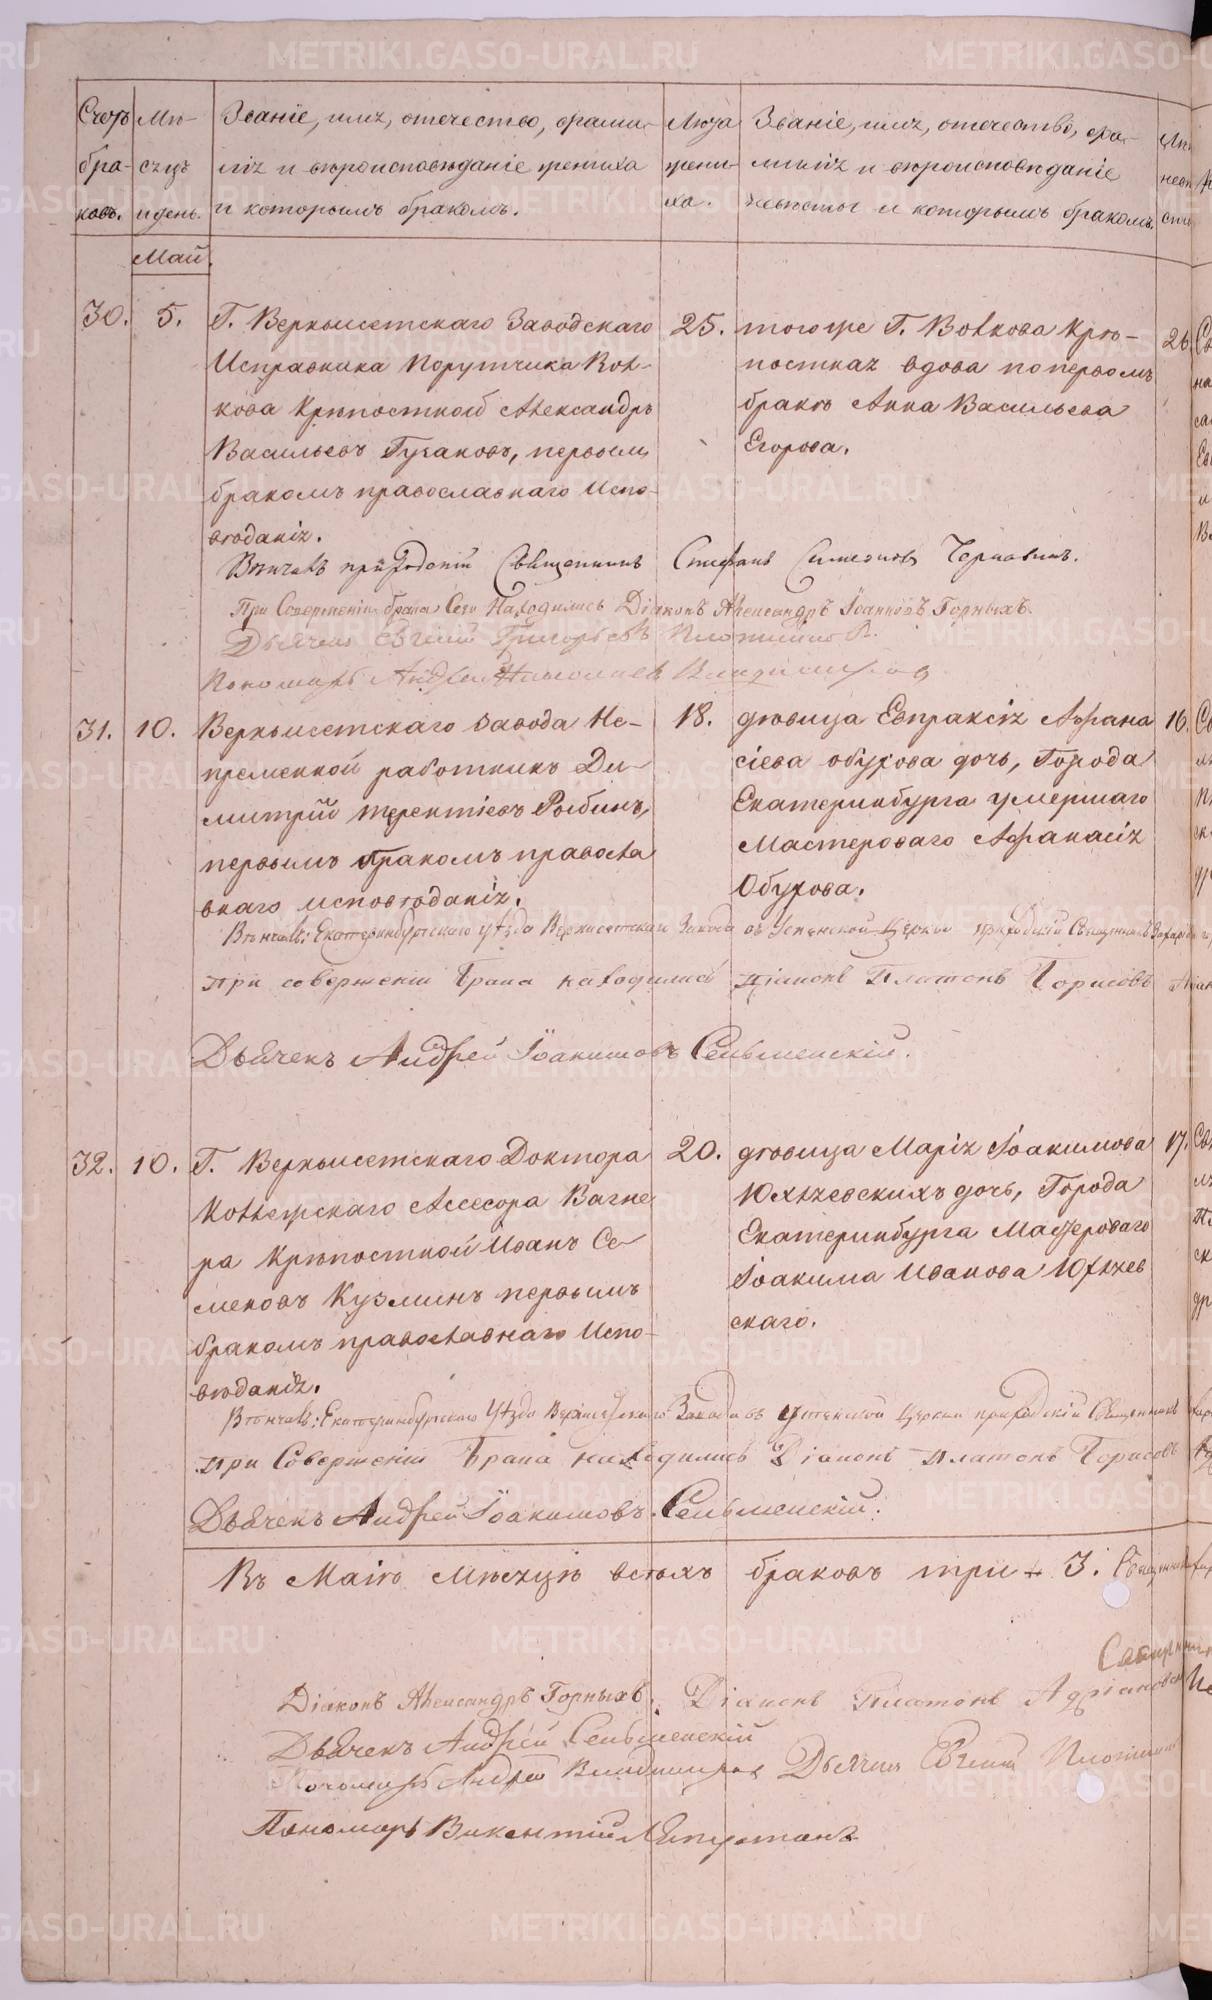 Счетъ браковъ.
Мѣсяцъ и день.
Званіе, имя, отечество, фамилія и вѣроисповѣданіе жениха и которымъ бракомъ.
Лѣта жениха.
Званіе, имя, отечество, фамилія и вѣроисповѣданіе невѣсты и которымъ бракомъ.
Май.
30. 5.
Г. Верхъисетскаго Заводскаго
Исправника Порутчика Вол-
кова Крѣпостной Александръ
Васильевъ Гусаковъ, первымъ
бракомъ православнаго Испо-
вѣданія.
25.
тогоже Г. Волкова Крѣ-
постная вдова по первомъ
бракѣ Анна Васильева
Егорова.
26.
Вѣнчалъ приходскій Священникъ Стефанъ Симеоновъ Чернавинъ.
При Совершеніи брака Сего Находились Діаконъ Александръ Іоанновъ Горныхъ.
Дьячекъ Евгеній Григорьевъ
Пономарь Андрей Владимировъ
31. 10.
Верхъисетскаго завода Не-
пременной работникъ Ди-
митрій Терентіевъ Рыбинъ,
первымъ бракомъ правосла
внаго исповѣданія.
18.
дѣвица Евпраксія Афана
сіева Обухова дочь, Города
Екатеринбурга умершаго
Мастероваго Афанасія
Обухова.
16.
Вѣнчалъ: Екатеринбургскаго уѣзда Верхисетскаго Завода въ Успенской Церкви приходскій Священникъ
При совершеніи Брака находились Діаконъ Платонъ Борисовъ
Дьячекъ Андрей Іоакимовъ Сельменскій.
32. 10.
Г. Верхъисетскаго Доктора
Коллежскаго Ассесора Вагне
ра Крѣпостной Иванъ Се-
меновъ Кузминъ первымъ
бракомъ православнаго Испо-
вѣданія.
20.
дѣвица Марія Іоакимова
Юхляевскихъ дочь, Города
Екатеринбурга Мастероваго
Іоакима Иванова Юхляев
скаго.
17.
Вѣнчалъ: Екатеринбургскаго Уѣзда Верхисетскаго Завода въ Успенской Церкви приходскій Священникъ
При Совершеніи Брака находились Діаконъ Платонъ Борисовъ
Дьячекъ Андрей Іоакимовъ Сельменскій.
Въ Маіѣ Мѣсяцѣ всѣхъ браковъ три 3. Священникъ
Діаконъ Александръ Горныхъ. Діаконъ Платонъ
Дьячекъ Андрей Сельменскій
Пономарь Андрей Владимировъ Дьячекъ Евгеній
Пономарь Викентій
METRIKI.GASO-URAL.RU